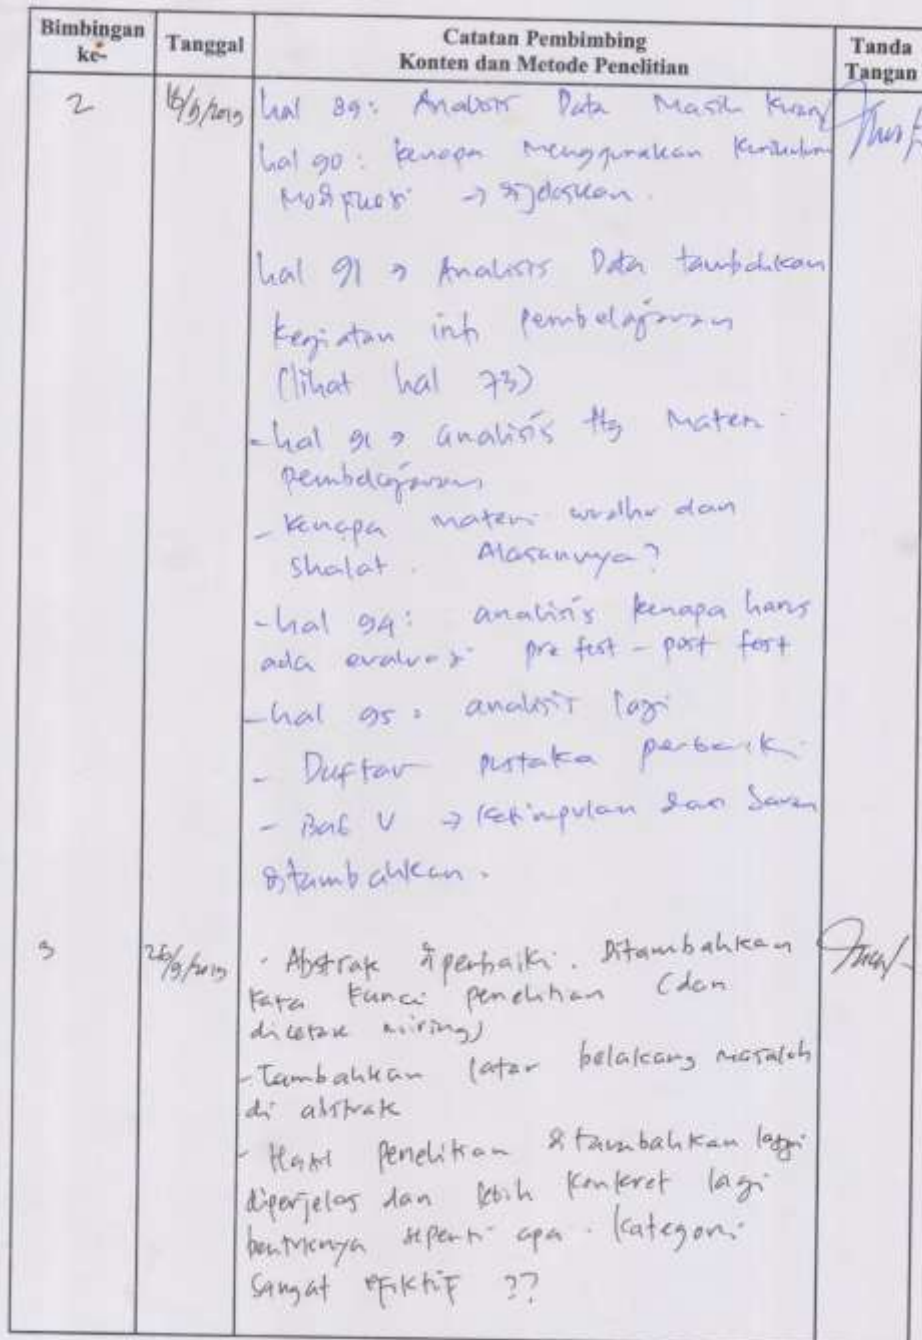 Bimbingan ke-
Tanggal
Catatan Pembimbing
Konten dan Metode Penelitian
Tanda Tangan
2
16/9/2019
hal 89: Analisis Data Masih kurang
hal 90: kenapa menggunakan kurikulum
Modifikasi → dijelaskan.
hal 91 → Analisis Data tambahkan
kegiatan inti pembelajaran
(lihat hal 73)
- hal 91 → analisis ttg materi
pembelajaran
- kenapa materi wudhu dan
shalat. Alasannya?
- hal 94: analisis kenapa harus
ada evaluasi pre test - post test
- hal 95: analisis lagi
- Daftar pustaka perbaiki
- Bab V → kesimpulan dan Saran
ditambahkan.
3
26/9/2019
- Abstrak diperbaiki. Ditambahkan
kata kunci penelitian (dan
dicetak miring)
- Tambahkan latar belakang masalah
di abstrak
- Hasil penelitian ditambahkan lagi
diperjelas dan lebih konkret lagi
bentuknya seperti apa. Kategori
sangat efektif ??